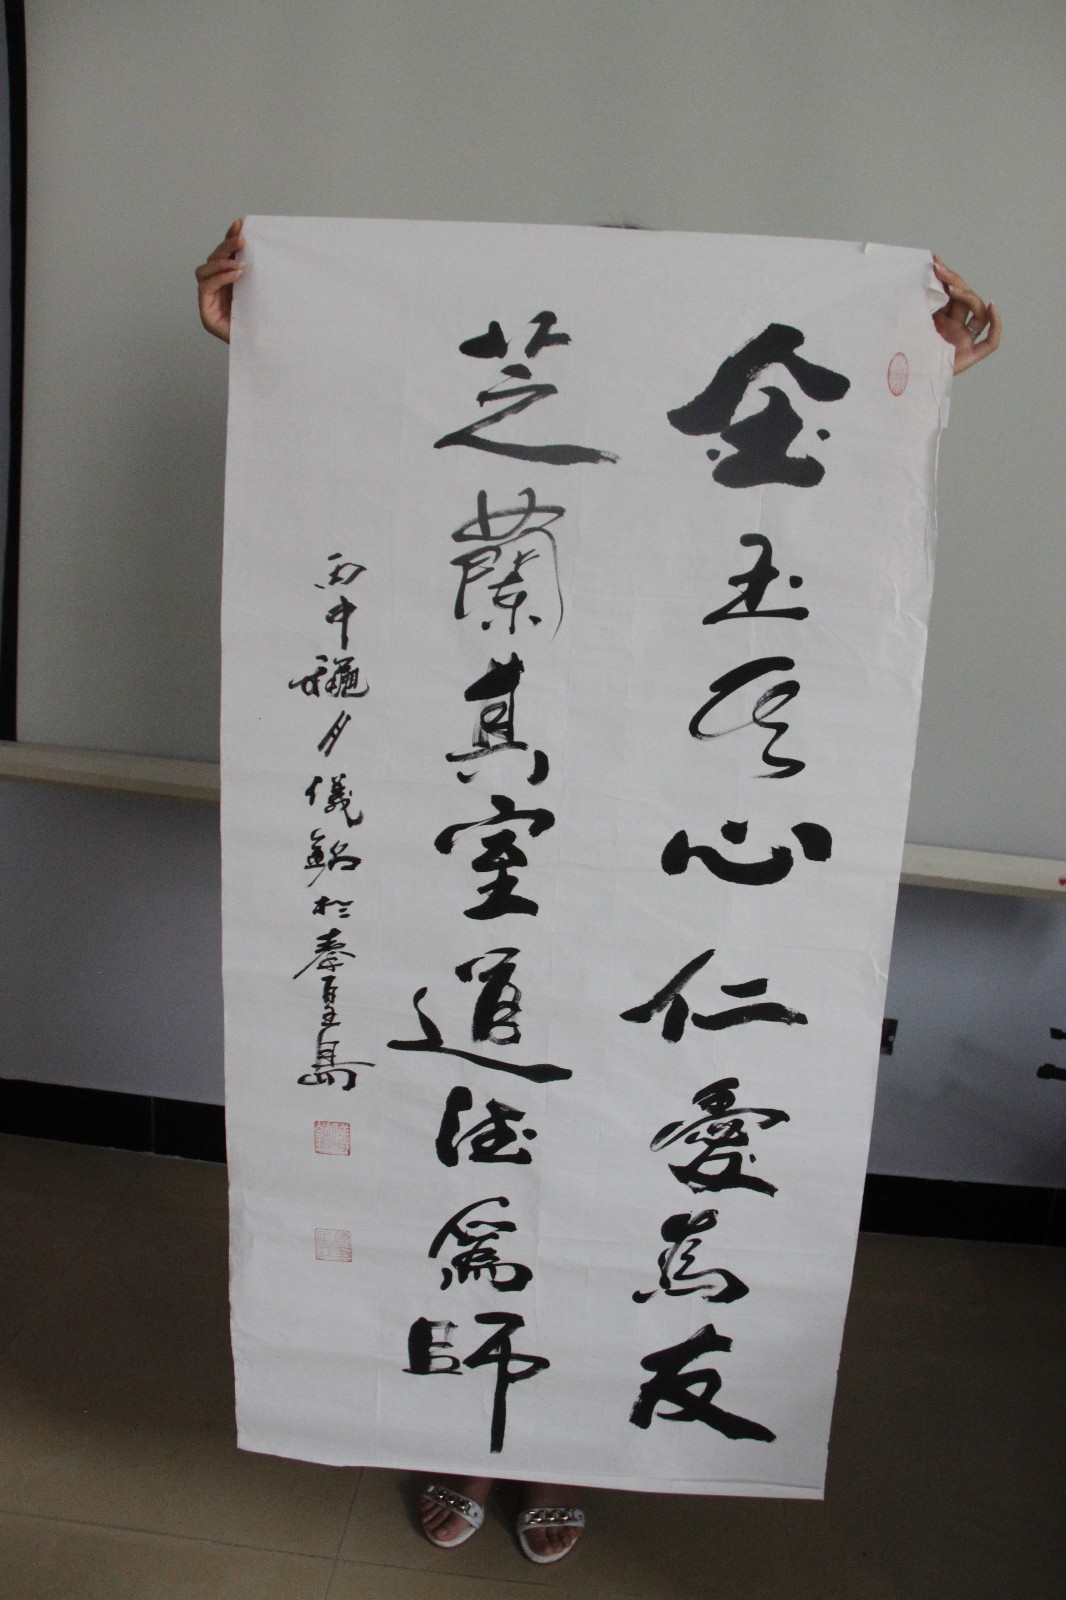 金玉其心仁愛為友
芝蘭其室道德為師
丙申龝月儀於秦皇島